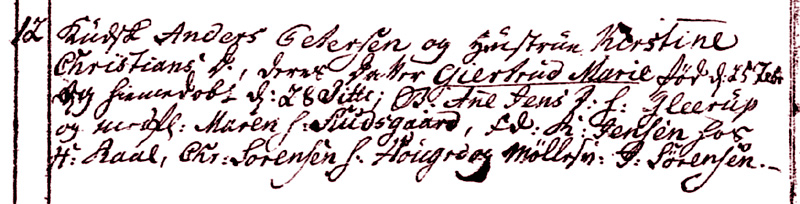 12 Kudsk Anders Petersen og Hustrue Kirstine
Christians D., deres Datter Giertrud Marie fød d: 25 Febr
og hiemedøbt d: 28 Ditto; B. Ane Jens D: f: Gleerup
og medfl: Maren f: Fuudsgaard, Ed: K: Jensen hos
H: Raae, Chr: Sørensen f. og Møllesv: P: Sørensen.